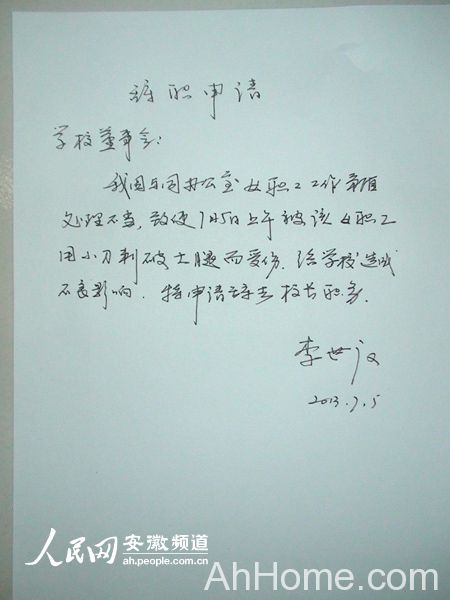 辞职申请
学校董事会:
我因与同办公室女职工工作矛盾
处理不当,致使7月5日上午被该女职工
用小刀刺破大腿而受伤.给学校造成
不良影响.特申请辞去校长职务.
李世
2013.7.5
人民网 安徽频道
ah.people.com.cn
AhHome.com